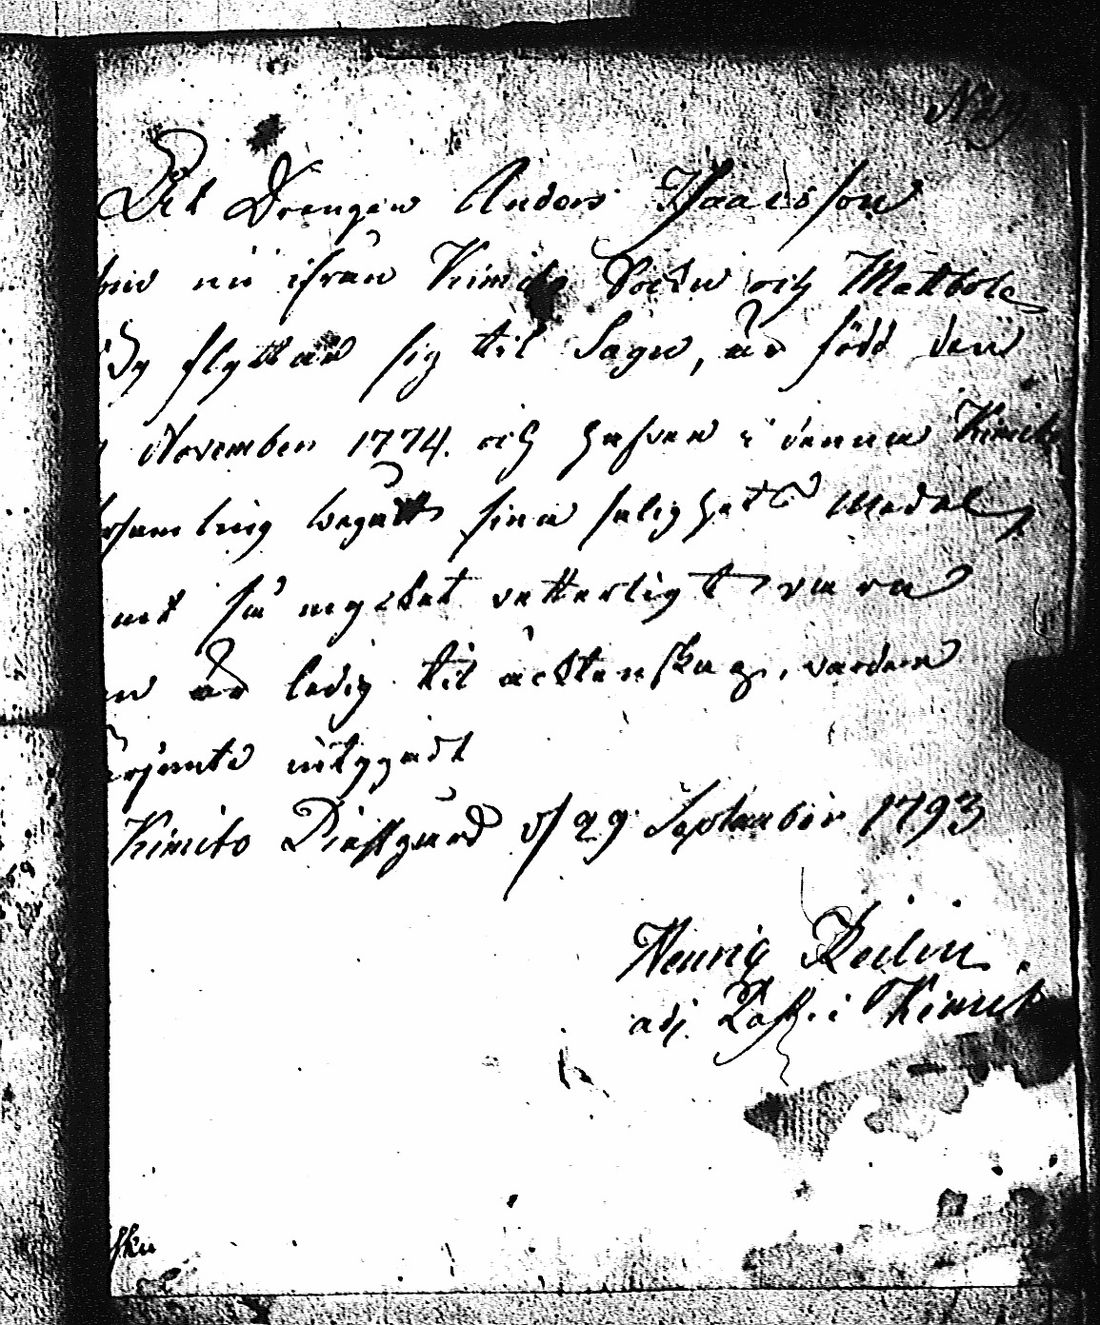 N:19
Att Drengen Anders Isaacsson
som nu ifrån Kimito Sockn och Mattbole
By flyttar sig til Sagu, är född den
November 1774. och hafver i denna Kimito
församling begått sina salighets Medel,
samt så mycket vetterligt vara
är ledig til ächtenskap, varder
härjemte utgga­dt
Kimito Prästgård d 29 September 1793
Henric Reilin
adj. Past. i Kimito